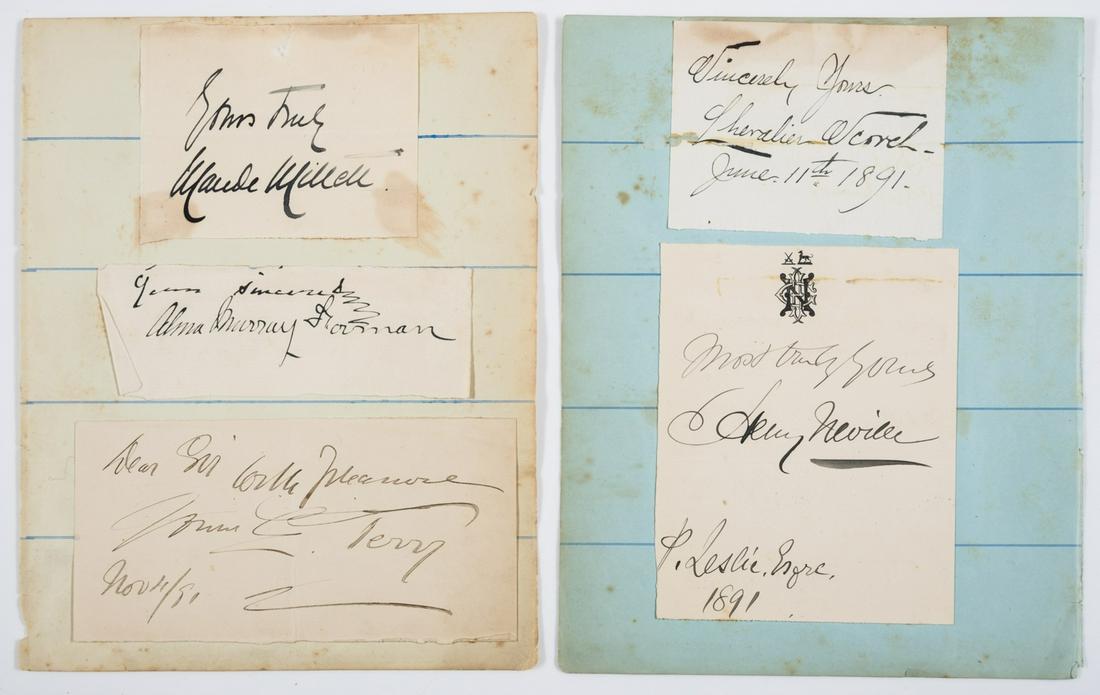 Yours truly
Maude Millett.
Yours sincerely
Alma Murray Forman
Dear Sir With Pleasure
Yours E. Terry
Nov 4/91
Sincerely Yours.
Chevalier Scovel.
June. 11th 1891.
Most truly yours
Henry Neville
P. Leslie, Esqre.
1891